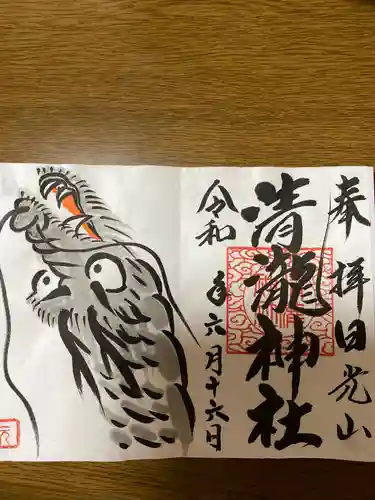 奉拝日光山
清瀧神社
令和 年六月十六日